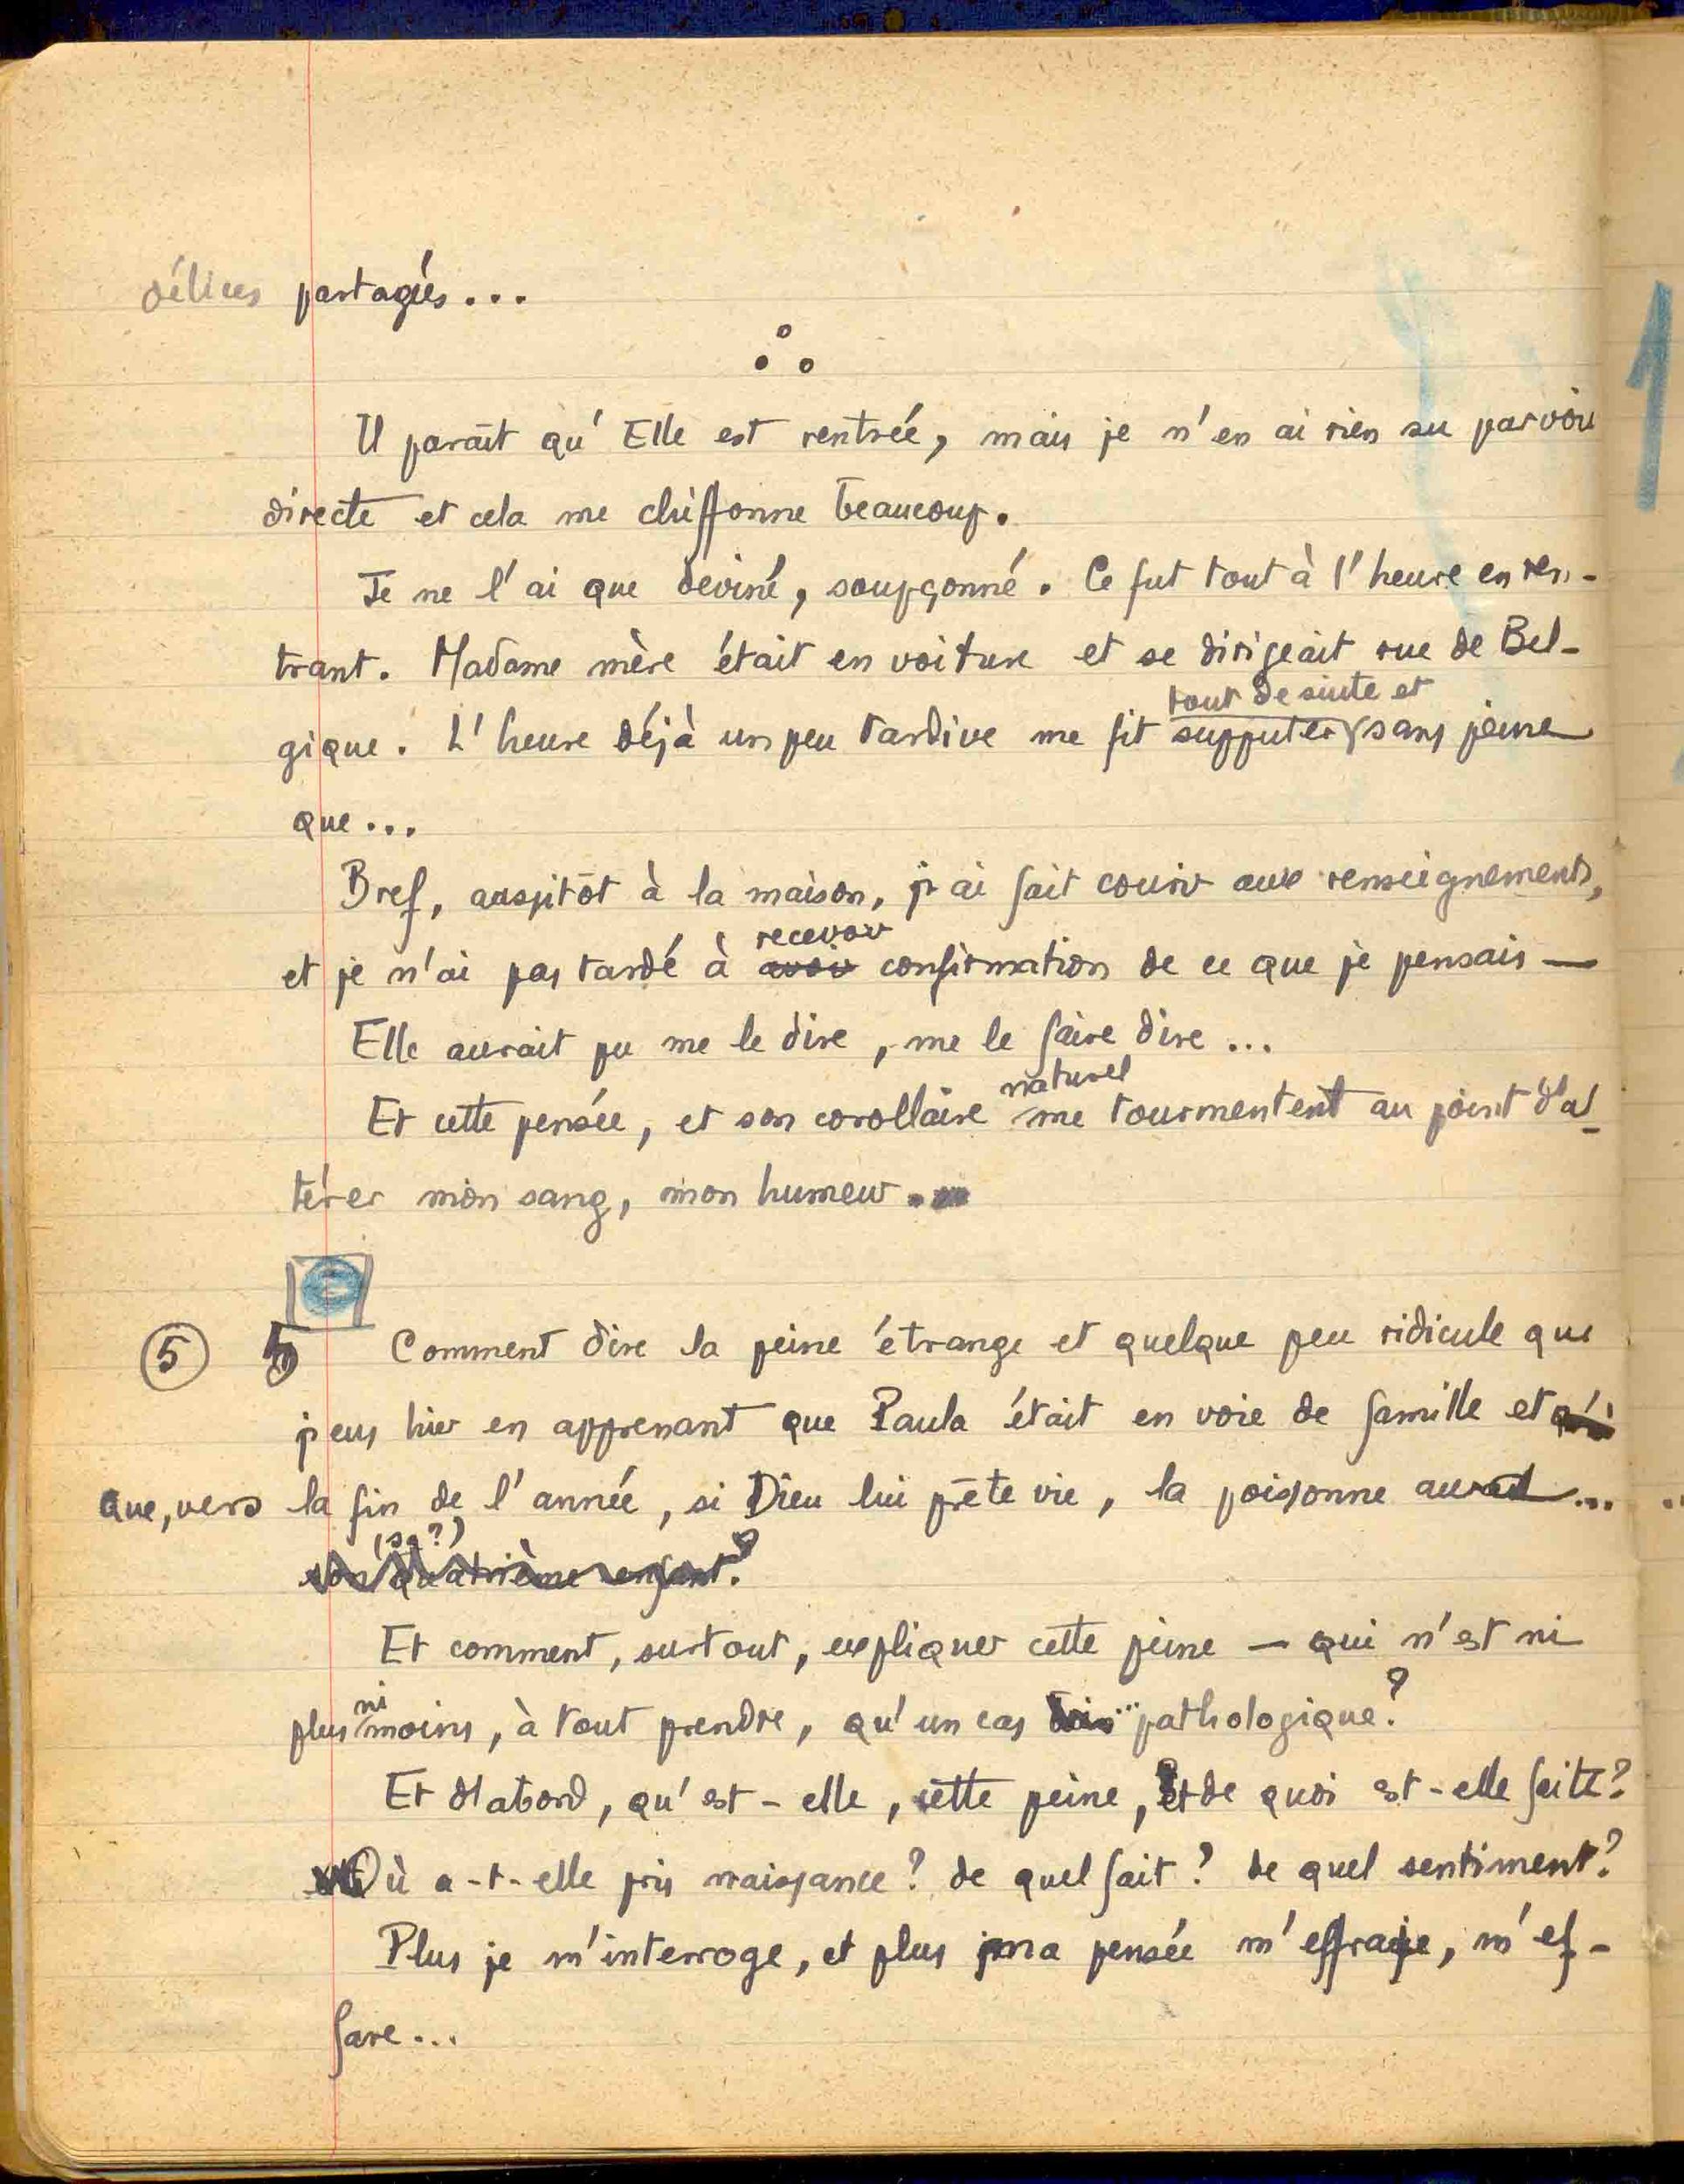 délices partagés...
Il paraît qu'Elle est rentrée, mais je n'en ai rien su par voie
directe et cela me chiffonne beaucoup.
Je ne l'ai que deviné, soupçonné. Ce fut tout à l'heure en ren-
trant. Madame mère était en voiture et se dirigeait rue de Bel-
tout de suite et
gique. L'heure déjà un peu tardive me fit supputer sans peine
que...
Bref, aussitôt à la maison, j'ai fait courir aux renseignements,
recevoir
et je n'ai pas tardé à avoir confirmation de ce que je pensais —
Elle aurait pu me le dire, me le faire dire...
naturel
Et cette pensée, et son corollaire me tourmentent au point d'al-
térer mon sang, mon humeur.
5 5 Comment dire la peine étrange et quelque peu ridicule que
j'eus hier en apprenant que Paula était en voie de famille et
que, vers la fin de l'année, si Dieu lui prête vie, la poissonne aurait...
(sa?)
son quatrième enfant?
Et comment, surtout, expliquer cette peine — qui n'est ni
ni
plus moins, à tout prendre, qu'un cas pathologique?
Et d'abord, qu'est-elle, cette peine, et de quoi est-elle faite?
Où a-t-elle pris naissance? de quel fait? de quel sentiment?
Plus je m'interroge, et plus ma pensée m'effraie, m'ef-
fare...
1